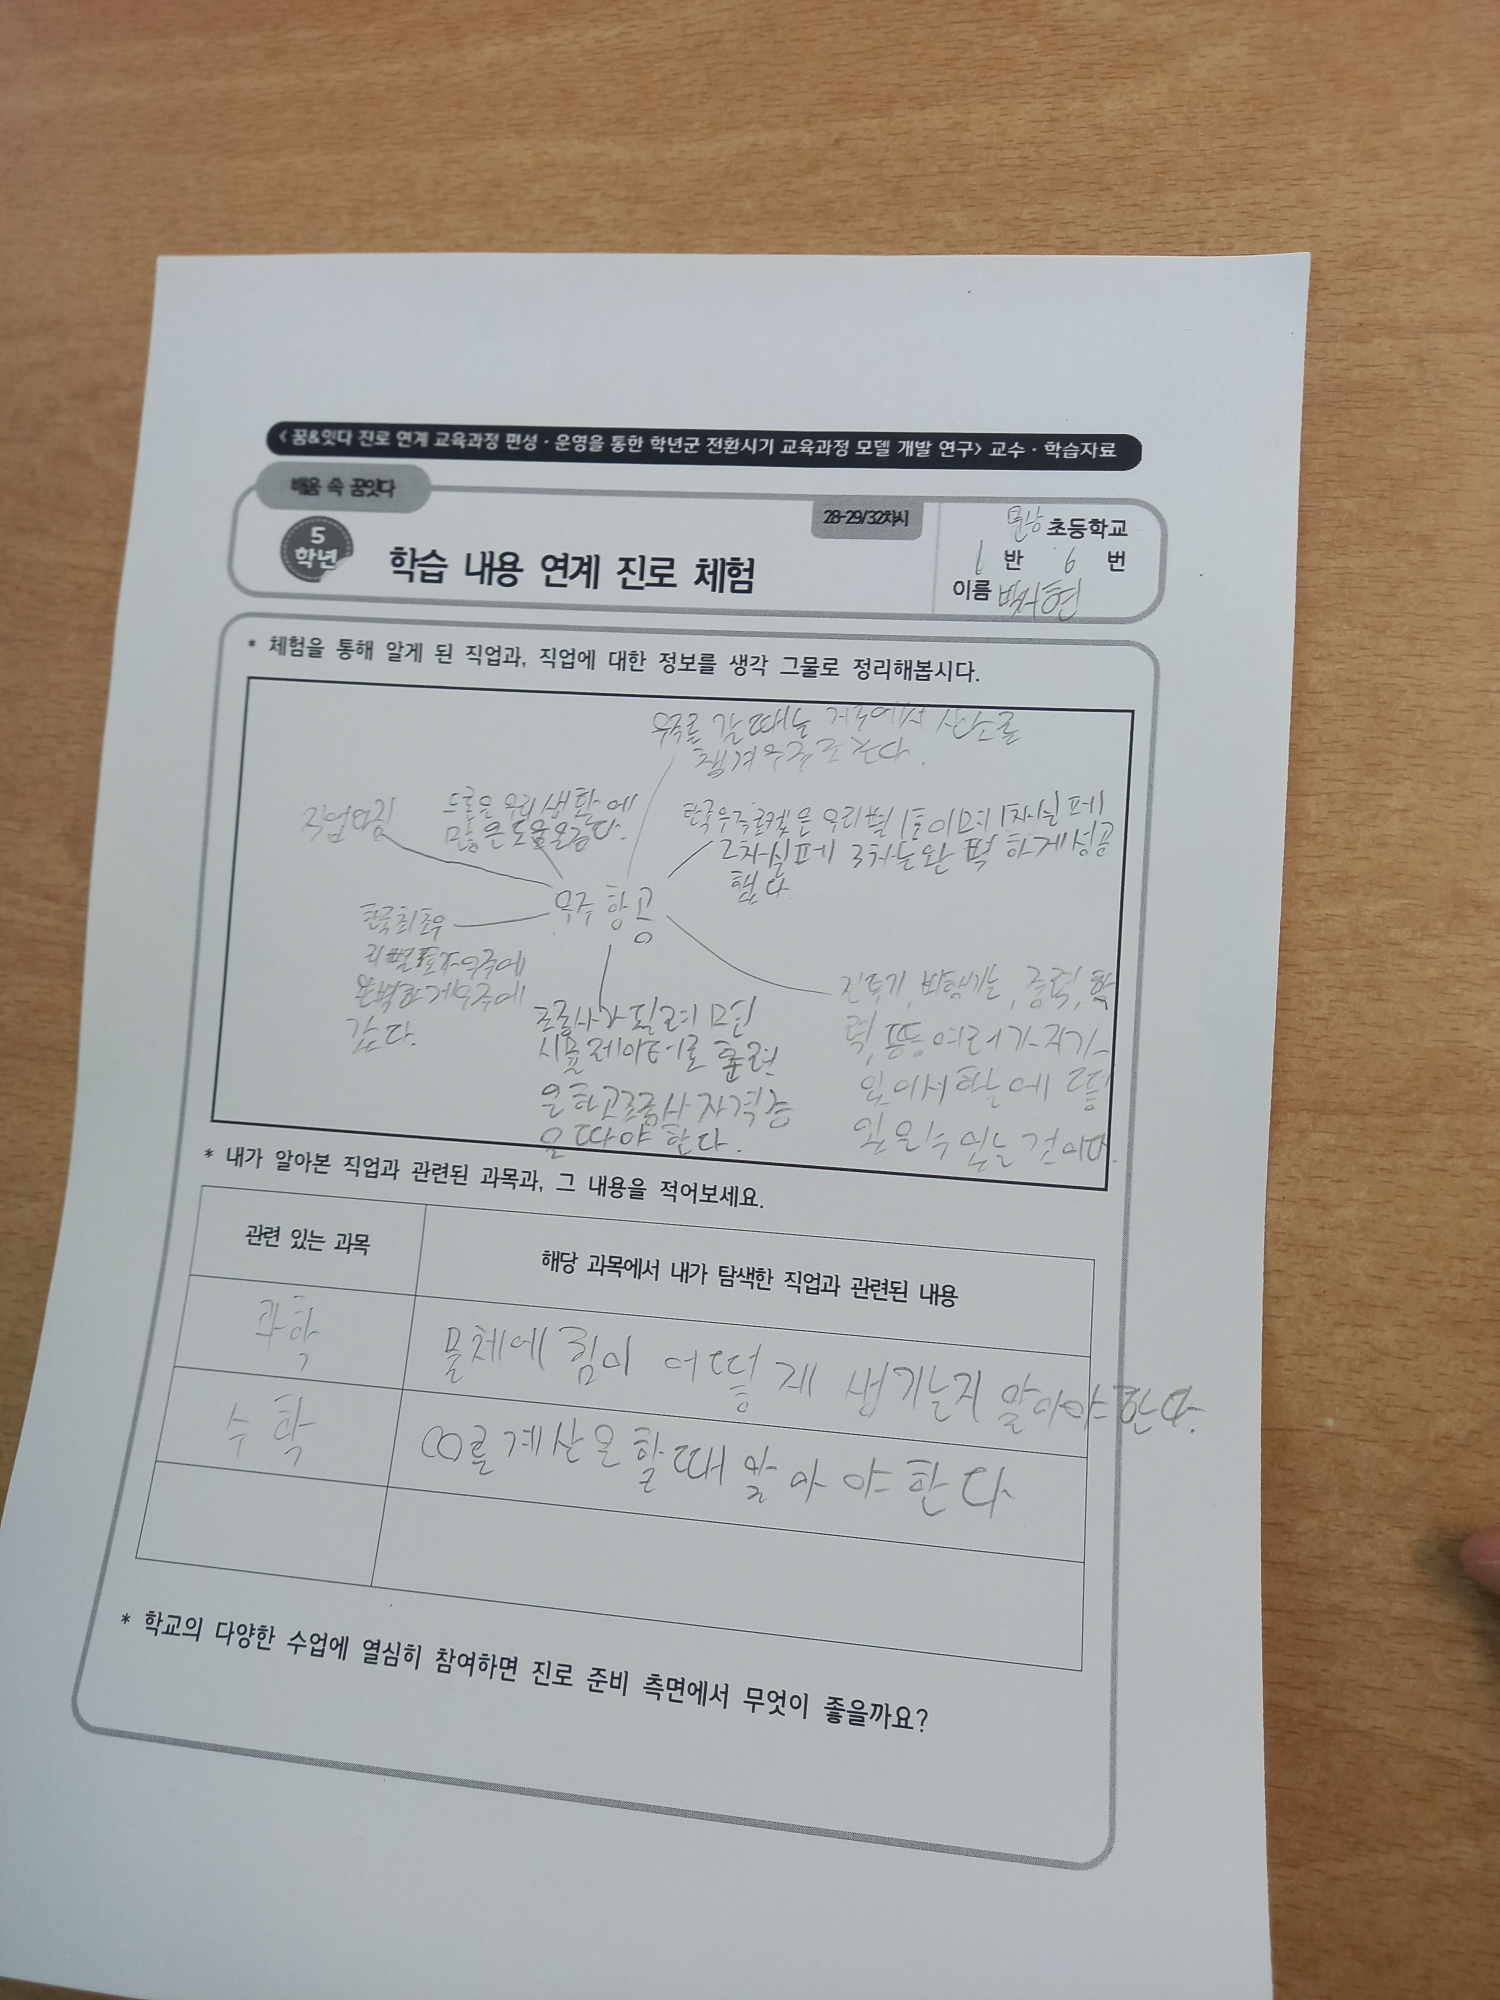 < 꿈&잇다 진로 연계 교육과정 편성 · 운영을 통한 학년군 전환시기 교육과정 모델 개발 연구> 교수 · 학습자료
배움 속 꿈잇다
28-29/32차시
5
학년
학습 내용 연계 진로 체험
초등학교
1 반 6 번
이름
* 체험을 통해 알게 된 직업과, 직업에 대한 정보를 생각 그물로 정리해봅시다.
우주를 갈때는 지구에서 산소를
챙겨
드론은 우리 생활에
많은 도움
한국우주로켓은 우리별 1호이며 1차실패
2차실패 3차는완벽하게성공
했다
우주 항공
한국최초우
리별1호가우주에
완벽하게우주에
갔다.
조종사가 될려면
시뮬레이터로 훈련
을 하고조종사자격증
을 따야 한다.
전투기, 비행기는, 중력,
력, 등 여러가지가
있어서 하늘에 떻
있을수 있는 것이다.
* 내가 알아본 직업과 관련된 과목과, 그 내용을 적어보세요.
관련 있는 과목
해당 과목에서 내가 탐색한 직업과 관련된 내용
과학
물체에 힘이 어떻게 생기는지 알아야한다.
수학
를계산을할때알아야한다
* 학교의 다양한 수업에 열심히 참여하면 진로 준비 측면에서 무엇이 좋을까요?